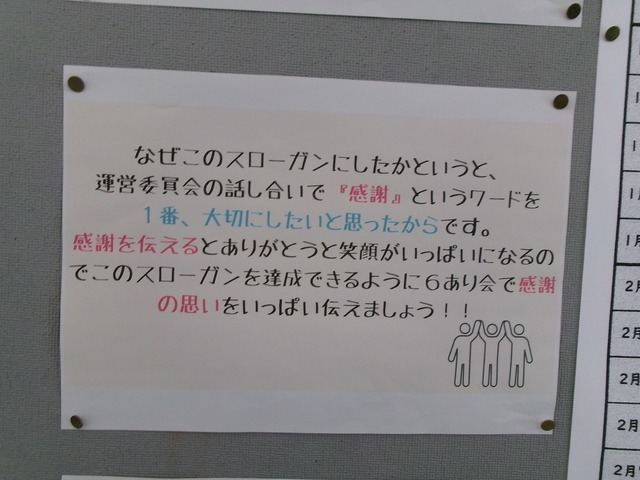 なぜこのスローガンにしたかというと、
運営委員会の話し合いで『感謝』というワードを
１番、大切にしたいと思ったからです。
感謝を伝えるとありがとうと笑顔がいっぱいになるの
でこのスローガンを達成できるように６あり会で感謝
の思いをいっぱい伝えましょう！！
2月
2月
2月
2月
2月